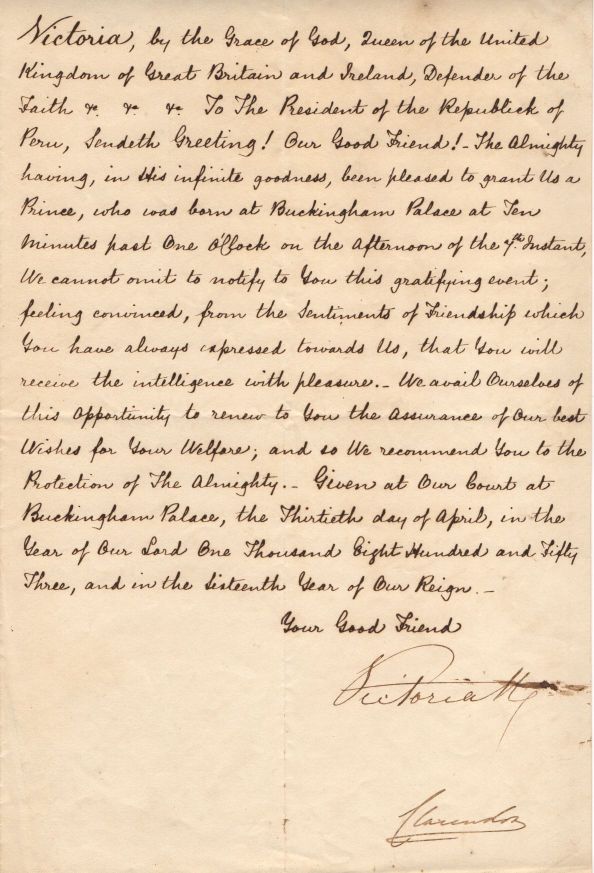 Victoria, by the Grace of God, Queen of the United
Kingdom of Great Britain and Ireland, Defender of the
Faith &c. &c. &c. To The President of the Republick of
Peru, Sendeth Greeting! Our Good Friend! - The Almighty
having, in His infinite goodness, been pleased to grant Us a
Prince, who was born at Buckingham Palace at Ten
Minutes past One O'Clock on the Afternoon of the 7th. Instant,
We cannot omit to notify to You this gratifying event;
feeling convinced, from the Sentiments of Friendship which
You have always expressed towards Us, that You will
receive the intelligence with pleasure. - We avail Ourselves of
this Opportunity to renew to You the Assurance of Our best
Wishes for Your Welfare; and so We recommend You to the
Protection of The Almighty. - Given at Our Court at
Buckingham Palace, the Thirtieth day of April, in the
Year of Our Lord One Thousand Eight Hundred and Fifty
Three, and in the Sixteenth Year of Our Reign. -
Your Good Friend
Victoria R
Clarendon